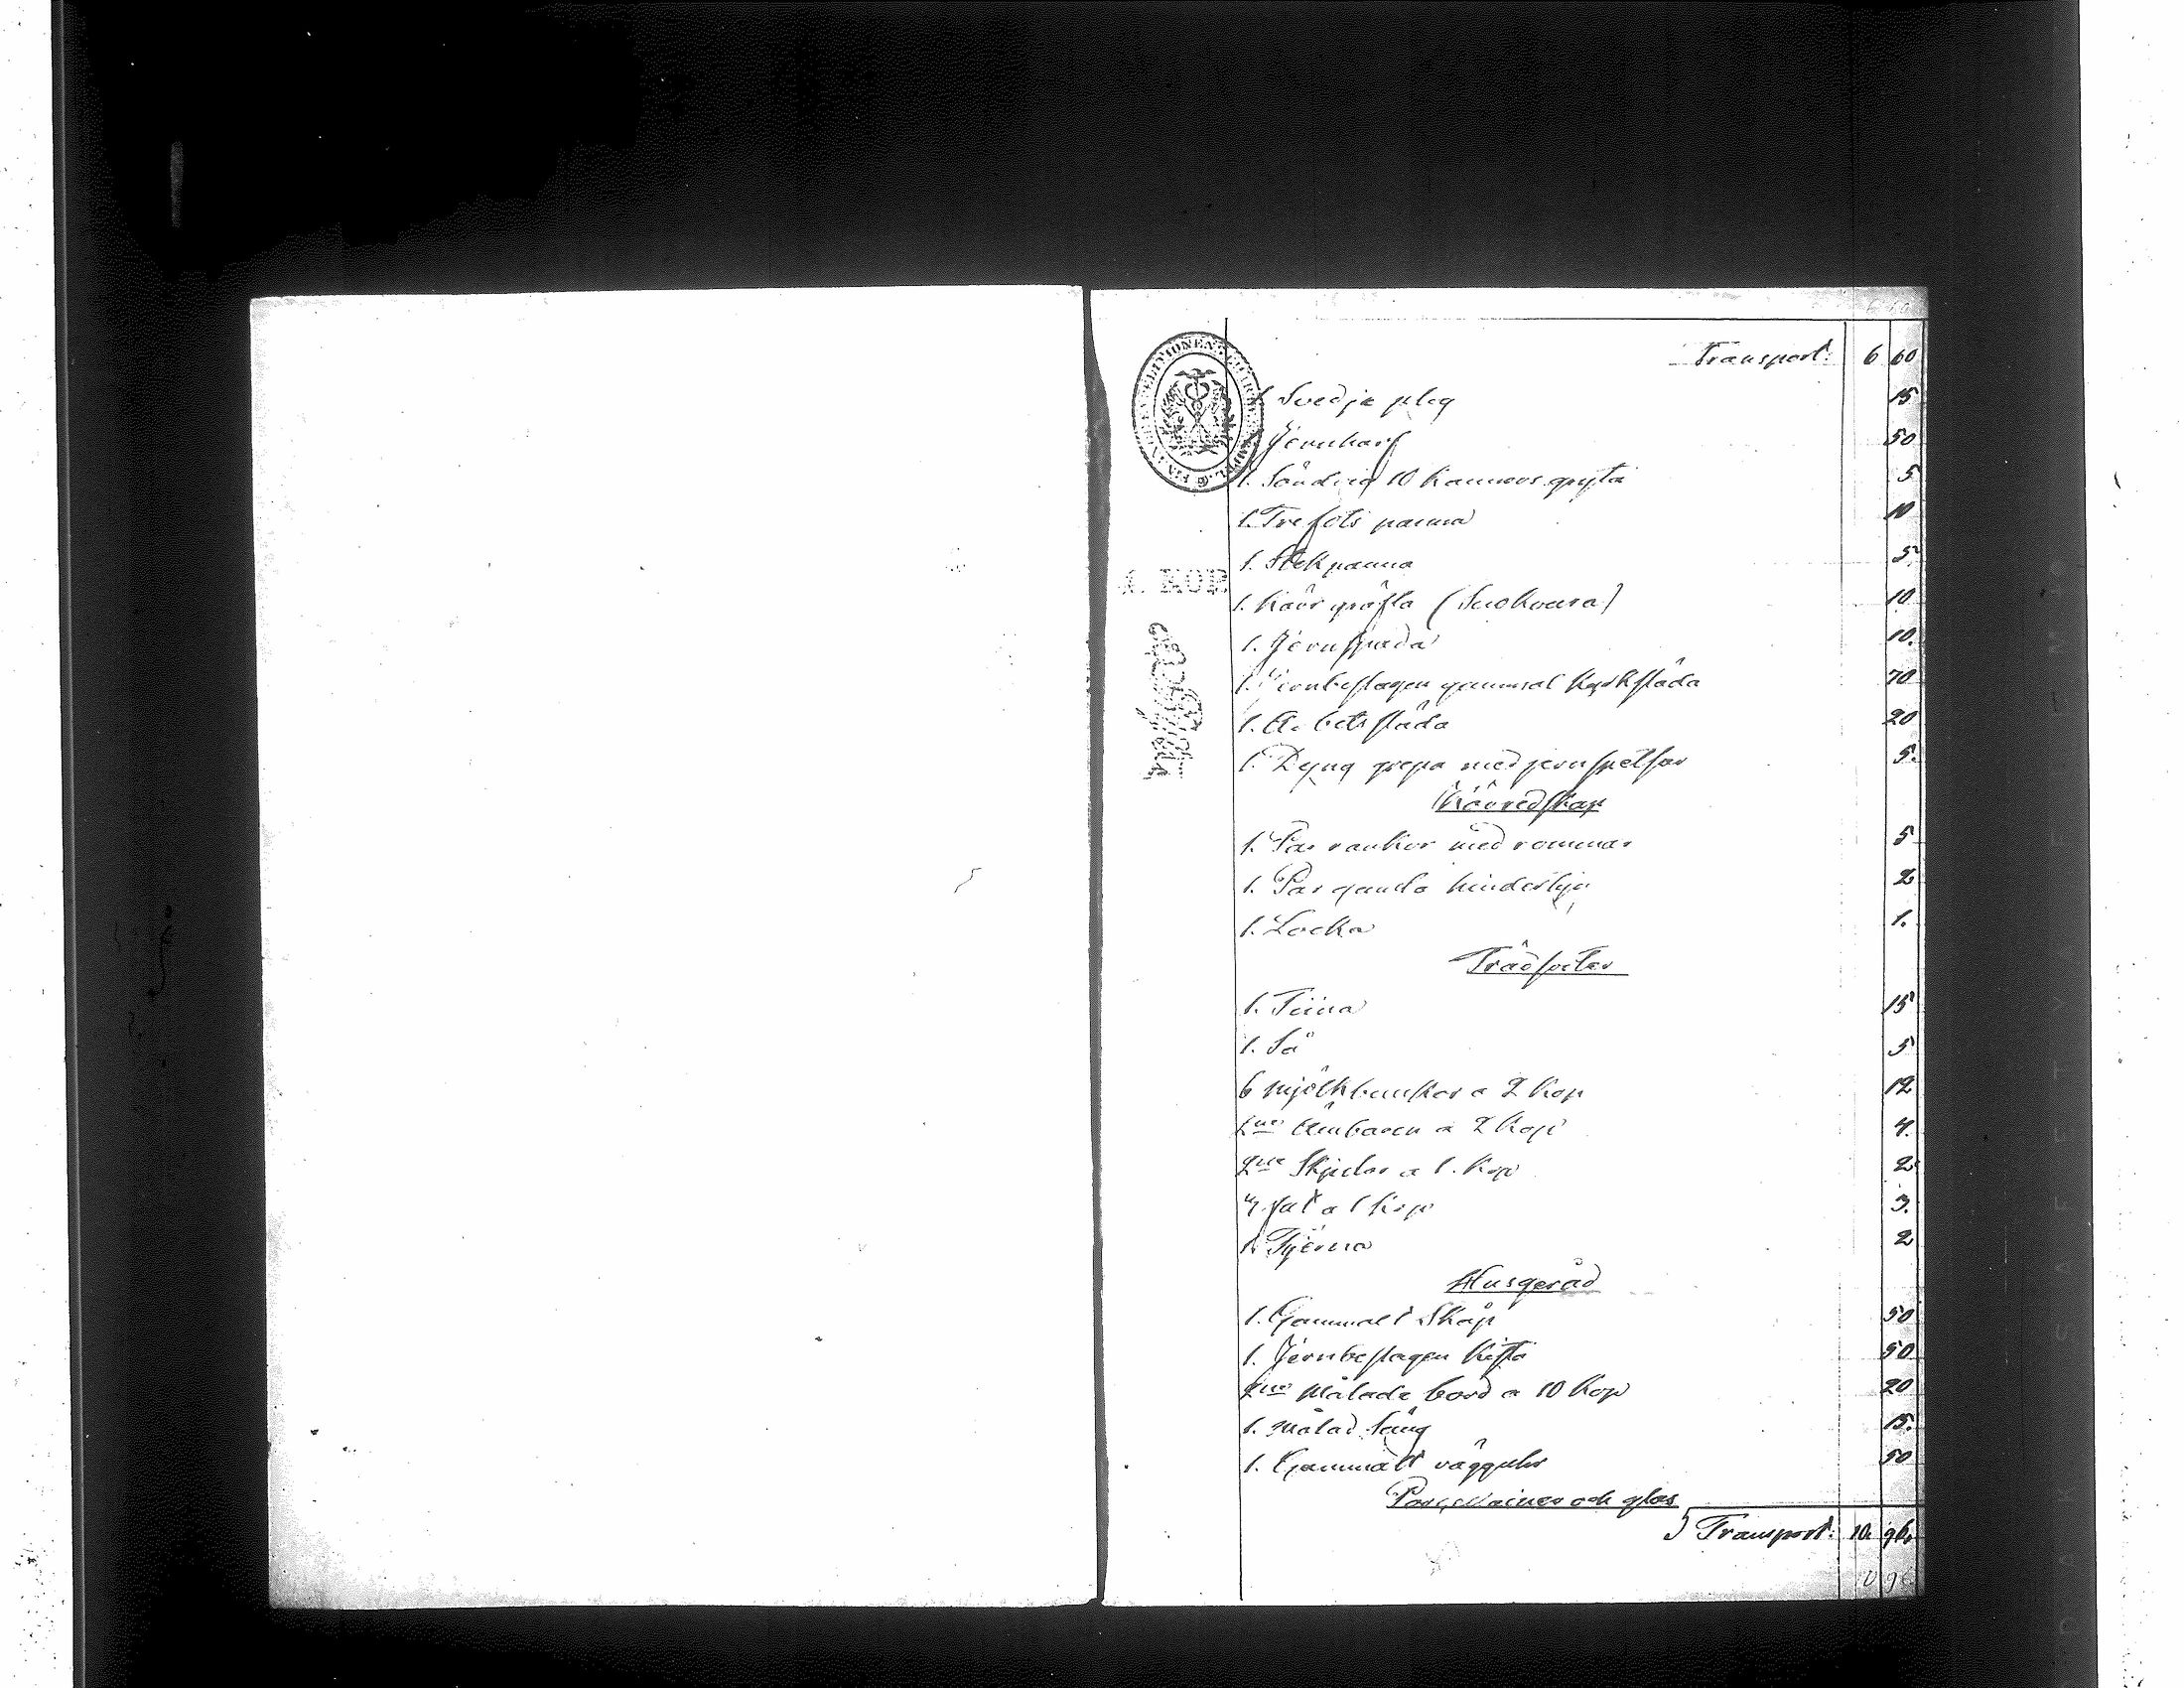 Transport: 6 60
1 Svedje plog 15
1 Jernharf 50
1. Söndrig 10 kannors gryta 5
1. Trefots panna 10
1. Stekpanna 5
1. Kärr gräfta (Suokuura) 10
1. Jernspada 10.
1. Jernbeslagen gammal Kyrksläda 70
1. Arbetssläda 20
1. Dyng grepa med jernspetsar 5.
Körredskap
1. Par rankor med rommar 5
1. Par gamla 2
1. Locka 1.
Trädsaker
1. Tiina 15
1. Så 5
6 mjölkbunkar a 2 Kop 12
2ne Ämbaren a 2 Kop 4.
2ne Skjulor a 1. Kop 2
3 fat a 1 Kop 3.
1. Tjerna 2
Husgeråd
1. Gammalt Skåp 50
1. Jernbeslagen Kista 50
2ne Målade bord a 10 Kop 20
1. Målad Säng 15.
1. Gammalt vägguhr 50
Porcellainer och glas
Transport: 10. 96.
10 96
4. KOP.